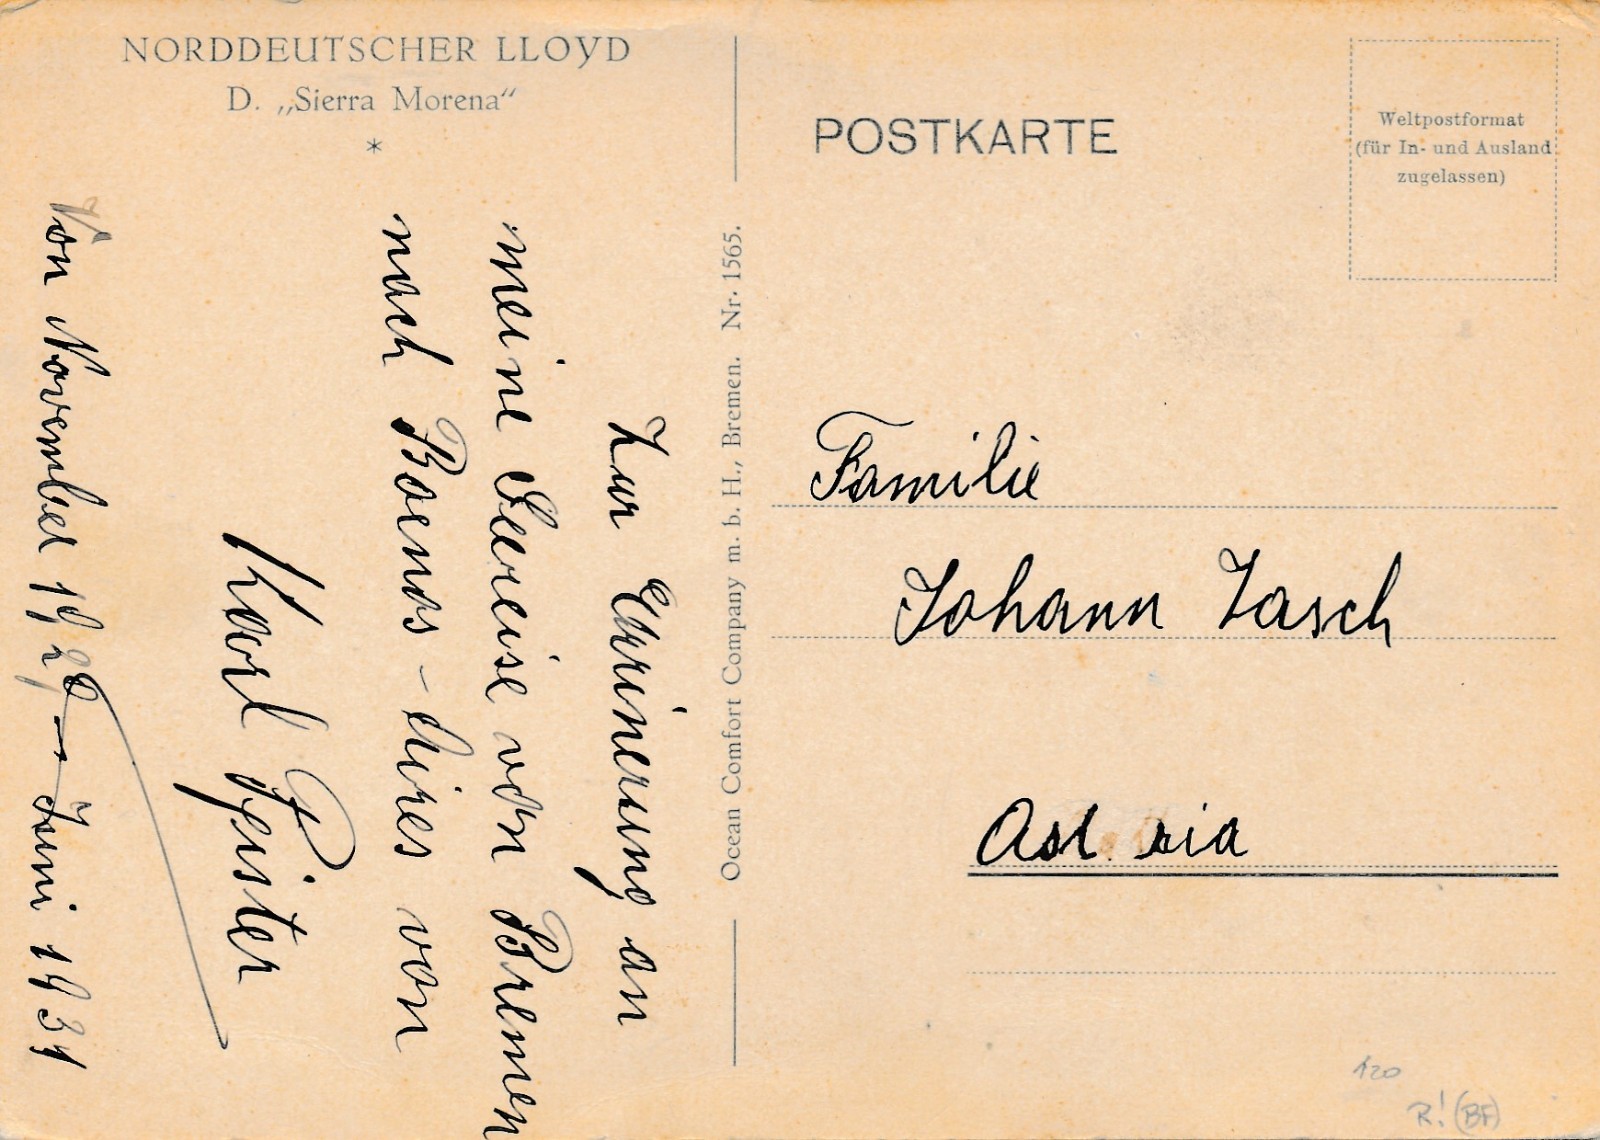 NORDDEUTSCHER LLOYD
D. „Sierra Morena“
*
Zur Errinerung an
meine Seereise von Bremen
nach Boenos - Aires von
Karl Pfister
Von November 1929 - Juni 1931
Ocean Comfort Company m. b. H., Bremen. Nr. 1565.
POSTKARTE
Weltpostformat
(für In- und Ausland
zugelassen)
Familie
Johann Jasch
Ast ria
120
R! (BF)